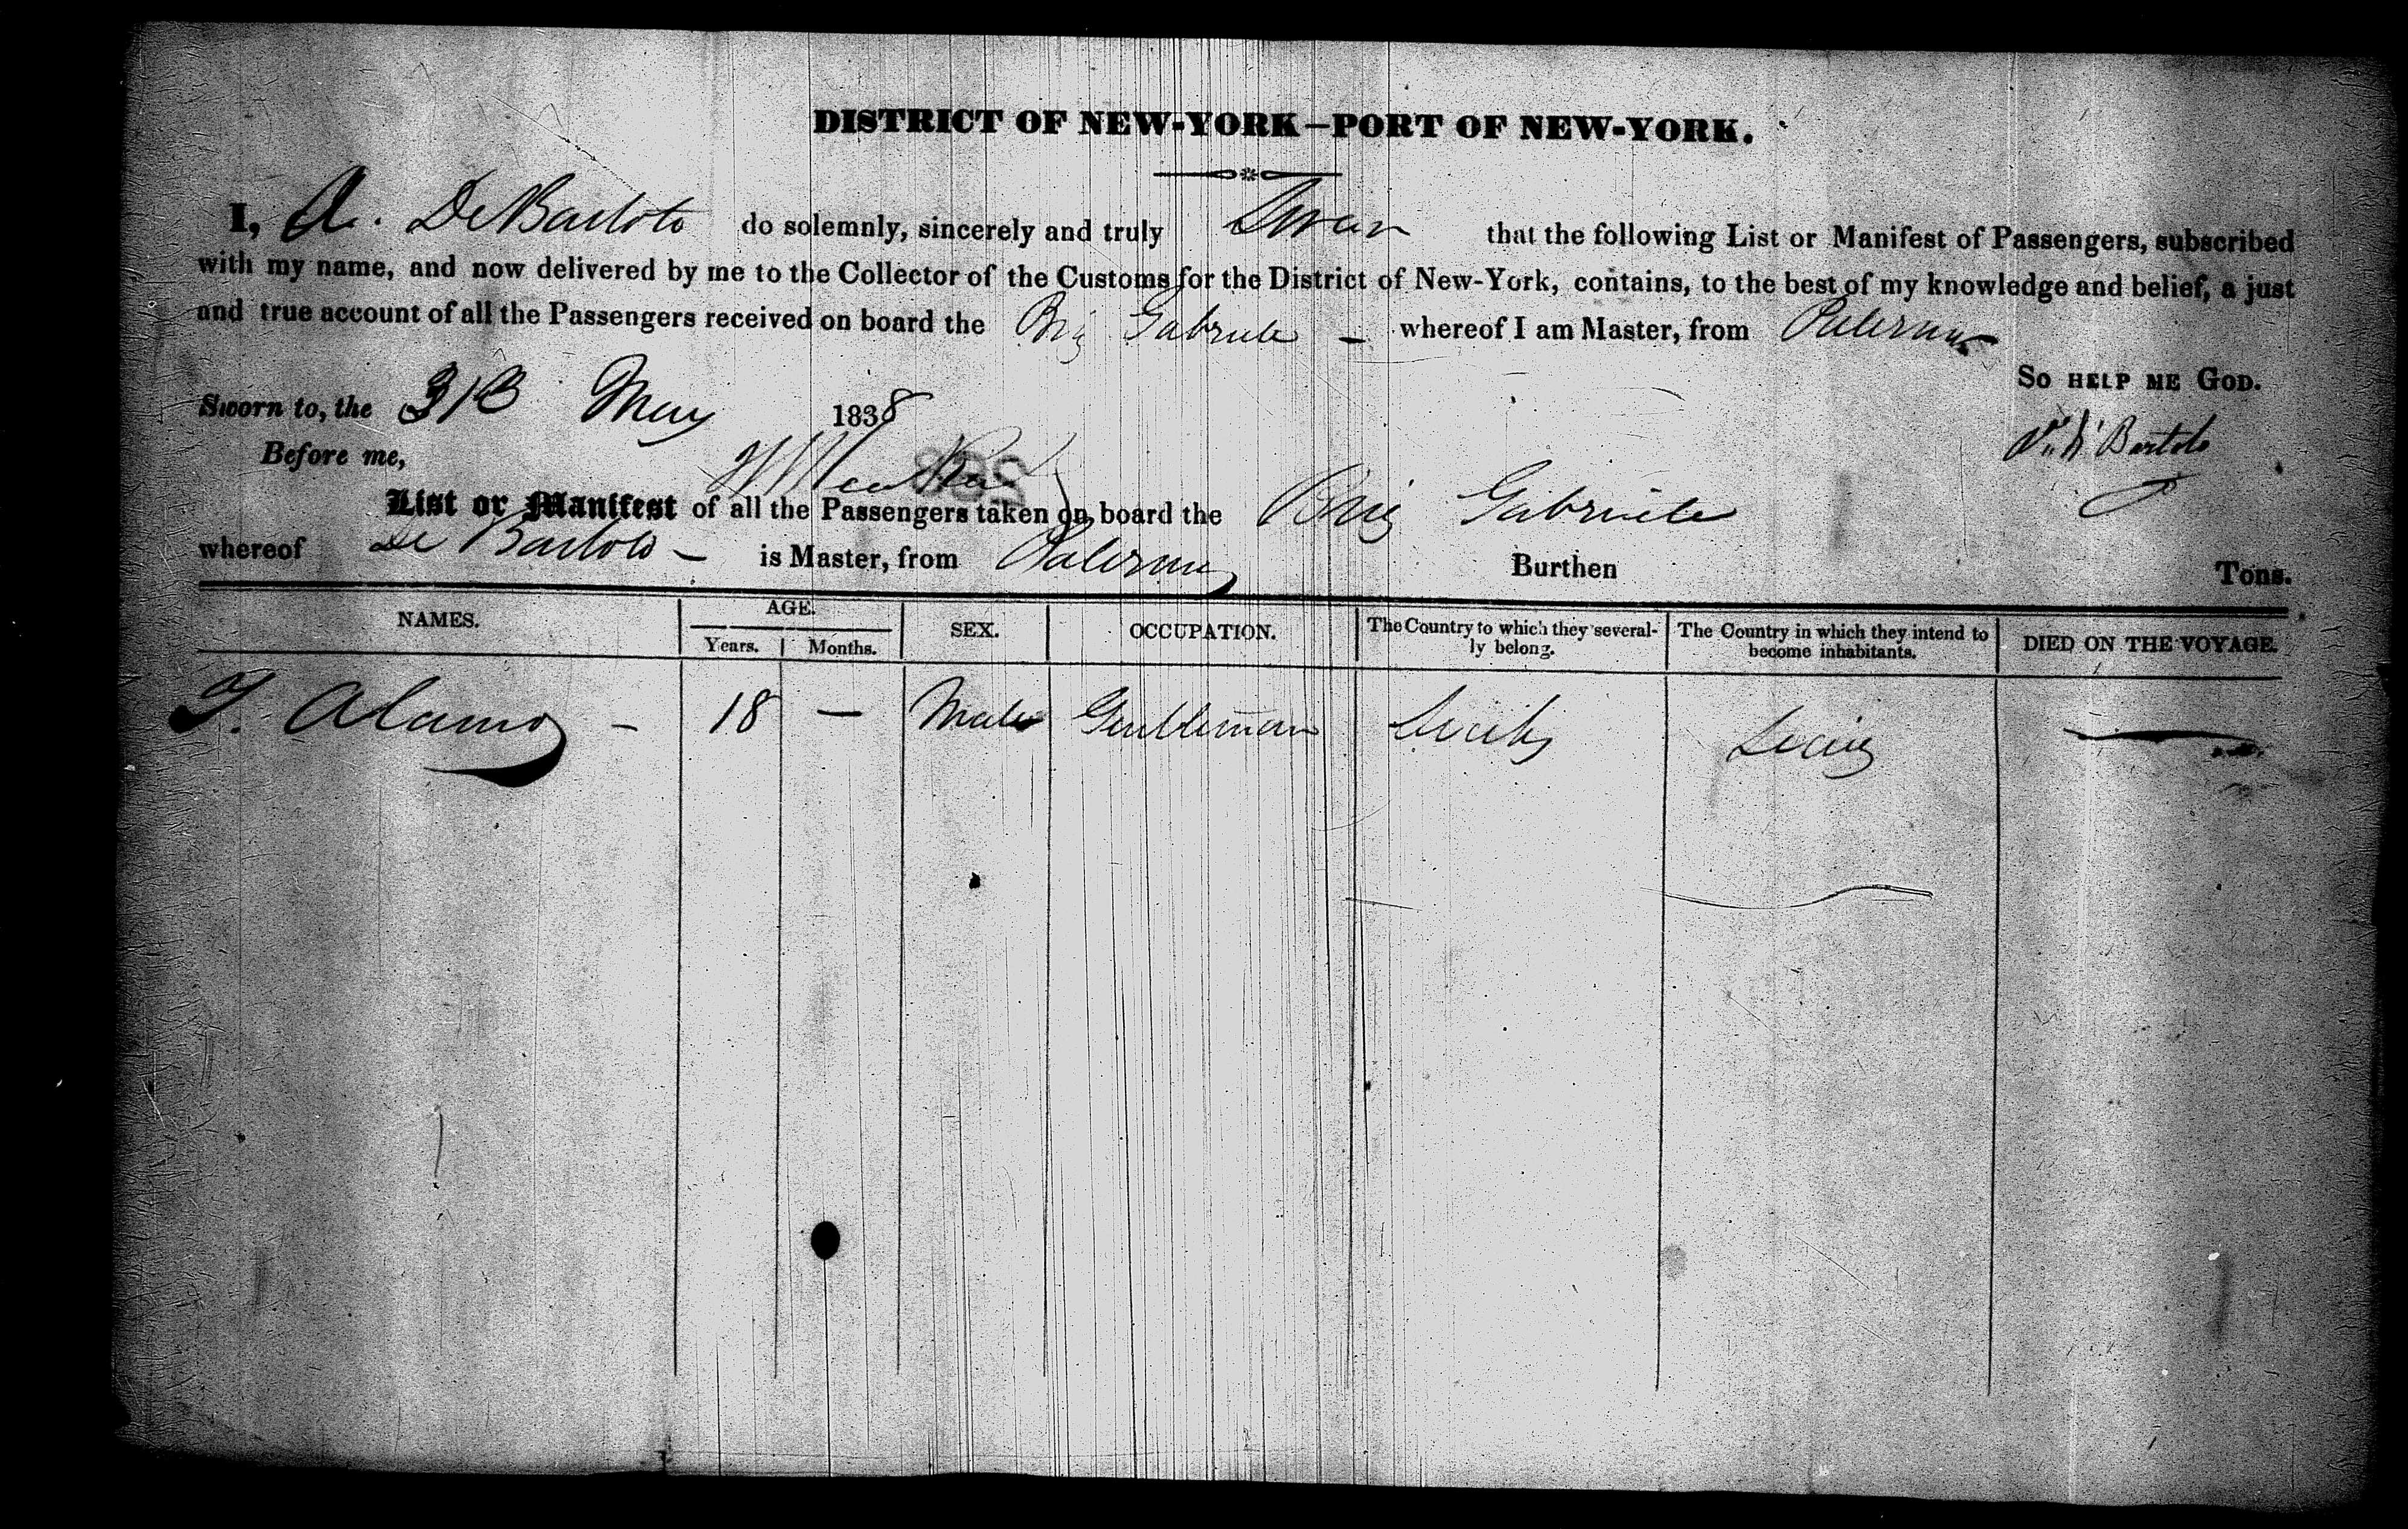 DISTRICT OF NEW-YORK—PORT OF NEW-YORK.
I, A. De Bartolo do solemnly, sincerely and truly Swear that the following List or Manifest of Passengers, subscribed
with my name, and now delivered by me to the Collector of the Customs for the District of New-York, contains, to the best of my knowledge and belief, a just
and true account of all the Passengers received on board the Brig Gabriele — whereof I am Master, from Palermo
So help me God.
Sworn to, the 31 May 1838
Before me,
Bartolo
List or Manifest of all the Passengers taken on board the Brig Gabriele
whereof De Bartolo — is Master, from Palermo Burthen Tons.
NAMES. AGE. SEX. OCCUPATION. The Country to which they several-ly belong. The Country in which they intend to become inhabitants. DIED ON THE VOYAGE.
Years. Months.
Alamo — 18 — Male Gentleman Sicily Sicily